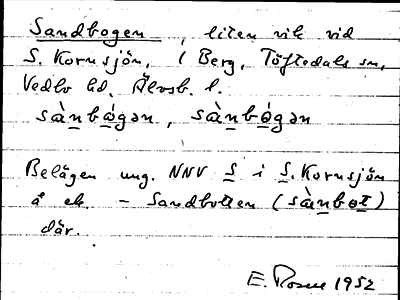 Sandbogen, liten vik vid
S. Kornsjön, i Berg, Töftedals sn,
Vedbo hd. Älvsb. l.
sànbǻgən, sànbǿgən
Belägen ung. NNV S i S. Kornsjön
å ek. - Sandbotten (sànbot)
där.
E. Rosen 1952